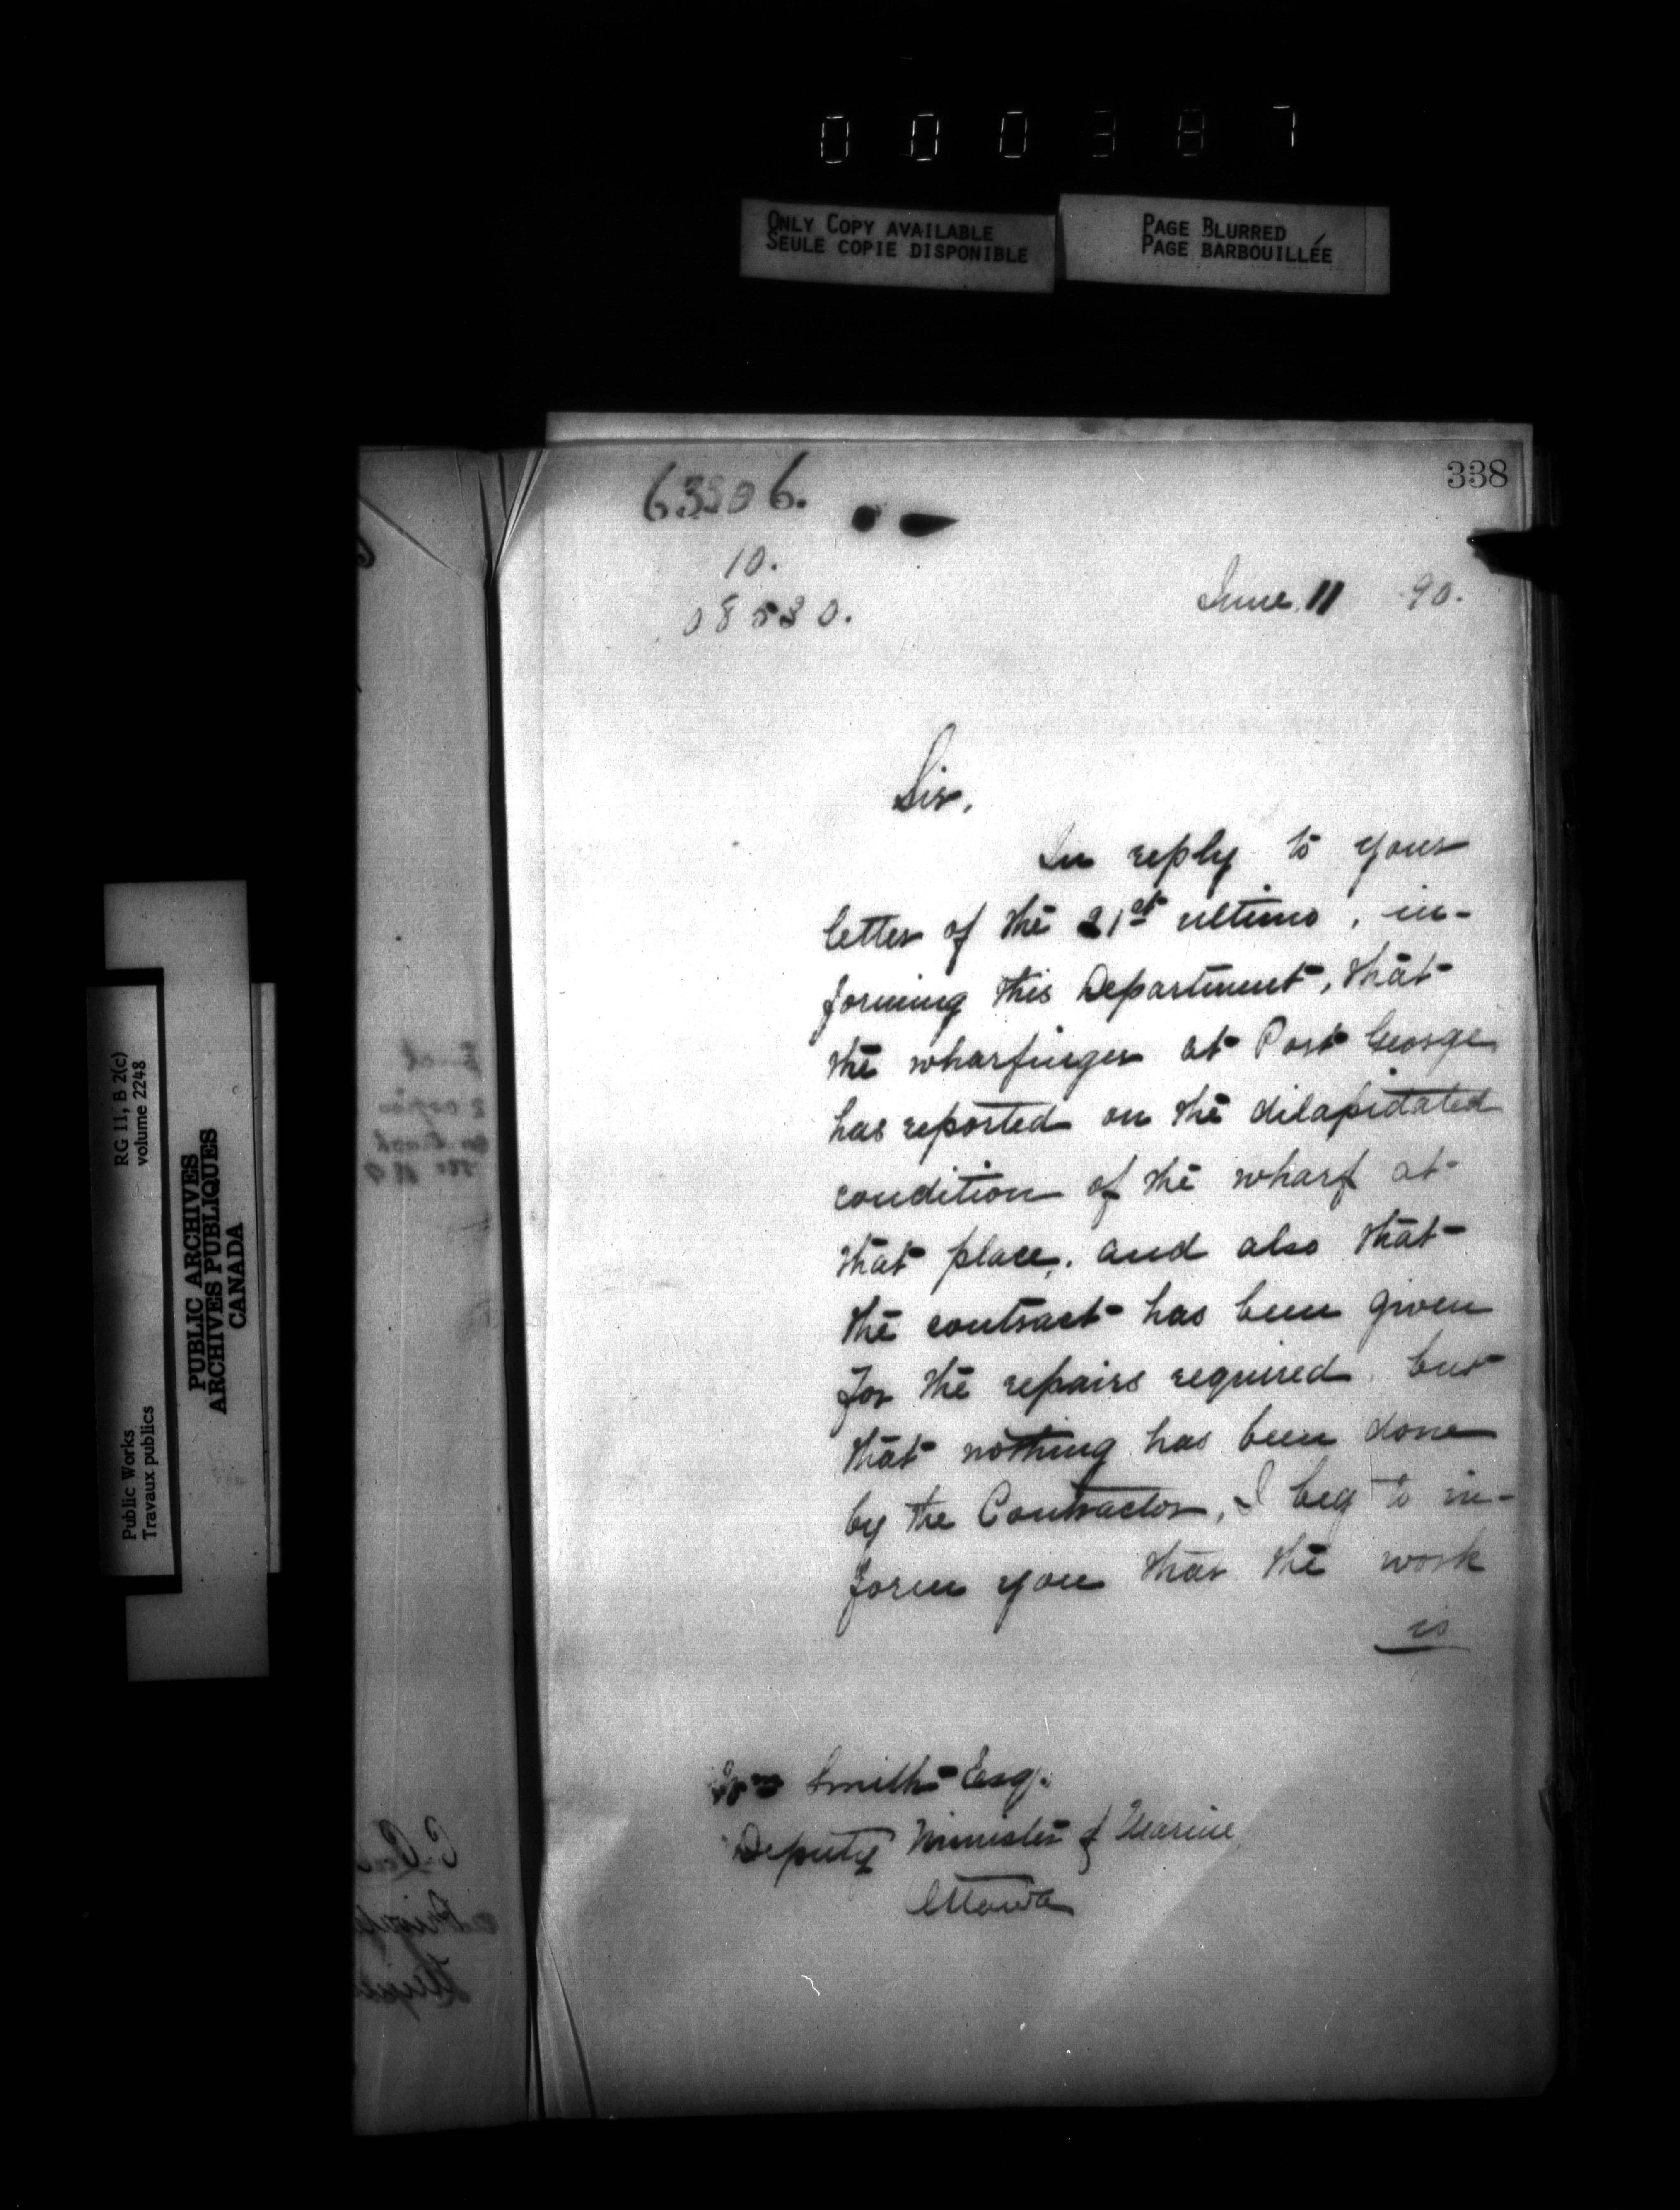 000387
ONLY COPY AVAILABLE
SEULE COPIE DISPONIBLE
PAGE BLURRED
PAGE BARBOUILLÉE
338
63306.
10.
08530.
June 11 90.
Sir,
In reply to your
letter of the 21st ultimo, in-
forming this Department, that
the wharfinger at Port George
has reported on the dilapidated
condition of the wharf at
that place, and also that
the contract has been given
for the repairs required, but
that nothing has been done
by the Contractor, I beg to in-
form you that the work
is
Wm Smith Esq.
Deputy Minister of Marine,
Ottawa
RG 11, B 2(c)
volume 2248
Public Works
Travaux publics
PUBLIC ARCHIVES
ARCHIVES PUBLIQUES
CANADA